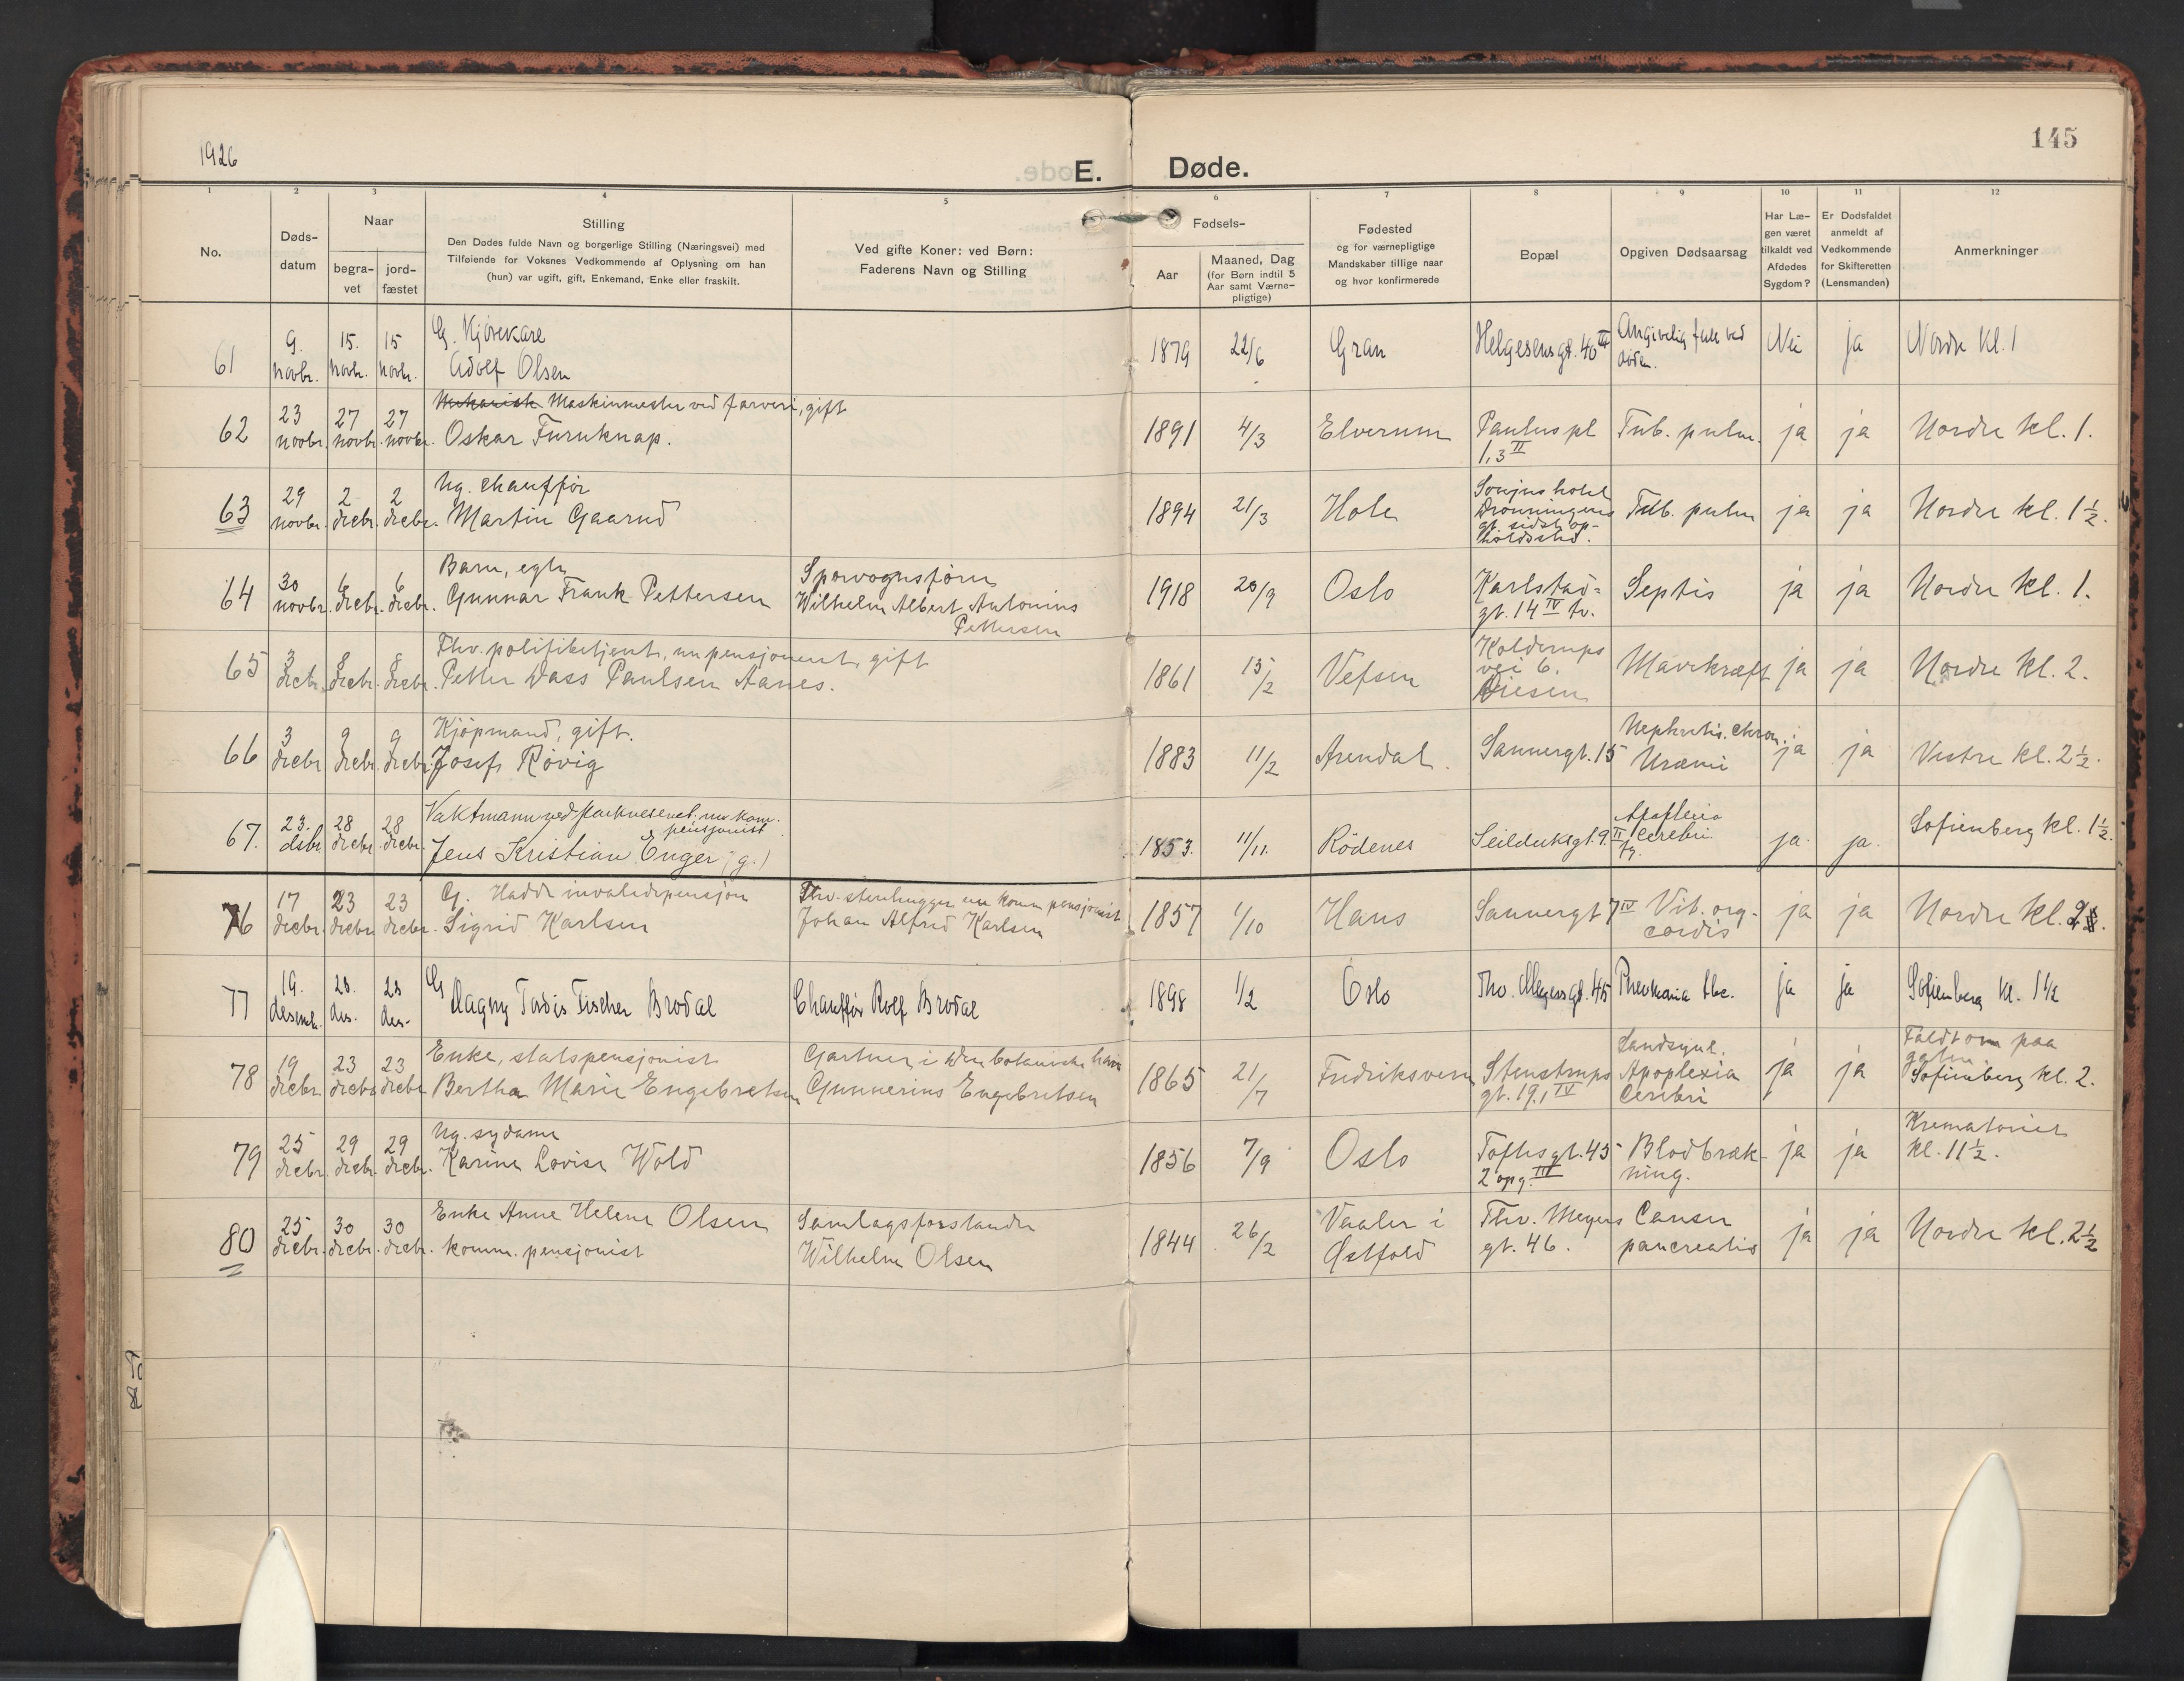 1926
E. Døde.
145
1 2 3 4 5 6 7 8 9 10 11 12
No.
Døds-
datum
Naar
begra-
vet
jord-
fæstet
Stilling
Den Dødes fulde Navn og borgerlige Stilling (Næringsvei) med
Tilføiende for Voksnes Vedkommende af Oplysning om han
(hun) var ugift, gift, Enkemand, Enke eller fraskilt.
Ved gifte Koner: ved Børn:
Faderens Navn og Stilling
Fødsels-
Aar
Maaned, Dag
(for Børn indtil 5
Aar samt Værne-
pligtige)
Fødested
og for værnepligtige
Mandskaber tillige naar
og hvor konfirmerede
Bopæl
Opgiven Dødsaarsag
Har Læ-
gen været
tilkaldt ved
Afdødes
Sygdom?
Er Dødsfaldet
anmeldt af
Vedkommende
for Skifteretten
(Lensmanden)
Anmerkninger
61 9. novbr. 15. novbr. 15 novbr. G. Kjørekarl
Adolf Olsen
1879 22/6 Gran Helgesensgt. 40 III Angivelig ved døden. Nei ja Nordre kl. 1
62 23 novbr. 27 novbr. 27 novbr. Maskinmester ved farveri, gift
Oskar Furuknap.
1891 4/3 Elverum Paulus pl
1,3 II
Tub. pulm. ja ja Nordre kl. 1.
63 29 novbr. 2 decbr. 2 decbr. Ug. chauffør
Martin Gaarud
1894 21/3 Hole hotel
Dronningens
gt. sidst op-
holdssted.
Tub. pulm ja ja Nordre kl. 1 ½.
64 30 novbr. 6 decbr. 6 decbr. Barn, egte
Gunnar Frank Pettersen
Sporvognsfører
Wilhelm Albert Antonius
Pettersen
1918 20/9 Oslo Karlstad-
gt. 14 IV tv.
Septis ja ja Nordre kl. 1.
65 3 decbr. 8 decbr. 8 decbr. Fhv. politibetjent, nu pensjonert, gift
Petter Dass Paulsen Aanes.
1861 15/2 Vefsen Kolderups
vei 6.
Disen
Mavekræft ja ja Nordre kl. 2.
66 3 decbr 9 decbr. 9 decbr. Kjøpmand, gift.
Josef Røvig
1883 11/2 Arendal. Sannergt. 15 Nephritis. chron.
Uræmi
ja ja Vestre kl. 2 ½.
67. 23. dsbr. 28 decbr. 28 decbr. Vaktmann ved parkvesenet. nu kom.
pensjonist
Jens Kristian Enger (g.)
1853. 11/11. Rödenes Seilduksgt. 9. II
Apoplexia
cerebri
ja. ja. Sofienberg kl. 1 ½.
76 17 decbr. 23 decbr. 23 decbr. G. Hadde invalidepensjon
Sigrid Karlsen
Fhv. stenhugger nu komm pensjonist
Johan Alfred Karlsen
1857 1/10 Hans Sannergt 7 IV Vit. org-
cordis
ja ja Nordre kl. 2.
77 19. desemb. 28. des. 28 des- G
Dagny Tordis Fischer Brodal
Chauffør Rolf Brodal
1898 1/2 Oslo Thv. Meyersgt. 45 Pnevmonia tbc. ja ja Sofienberg kl. 1 ½
78 19 decbr. 23 decbr 23 decbr Enke, statspensjonist
Bertha Marie Engebretsen
Gartner i den botaniske have
Gunnerius Engebretsen
1865 21/7 Fredriksvern Stenstrups
gt. 19.1 IV
Sandsynl.
Apoplexia
Cerebri
ja ja Faldt om paa
gaten.
Sofienberg kl. 2.
79 25 decbr. 29 decbr. 29 decbr. Ug. sydame
Karine Lovise Wold
1856 7/9 Oslo Toftesgt. 45
2 opg. III
Blodbræk-
ning.
ja ja Krematoriet
kl. 11 ½.
80 25 decbr. 30 decbr. 30 decbr. Enke Anne Helene Olsen
komm. pensjonist
Samlagsforstander
Wilhelm Olsen
1844 26/2 Vaaler i
Østfold
Thv. Meyers
gt. 46.
Cancer
pancreatis
ja ja Nordre kl. 2 ½